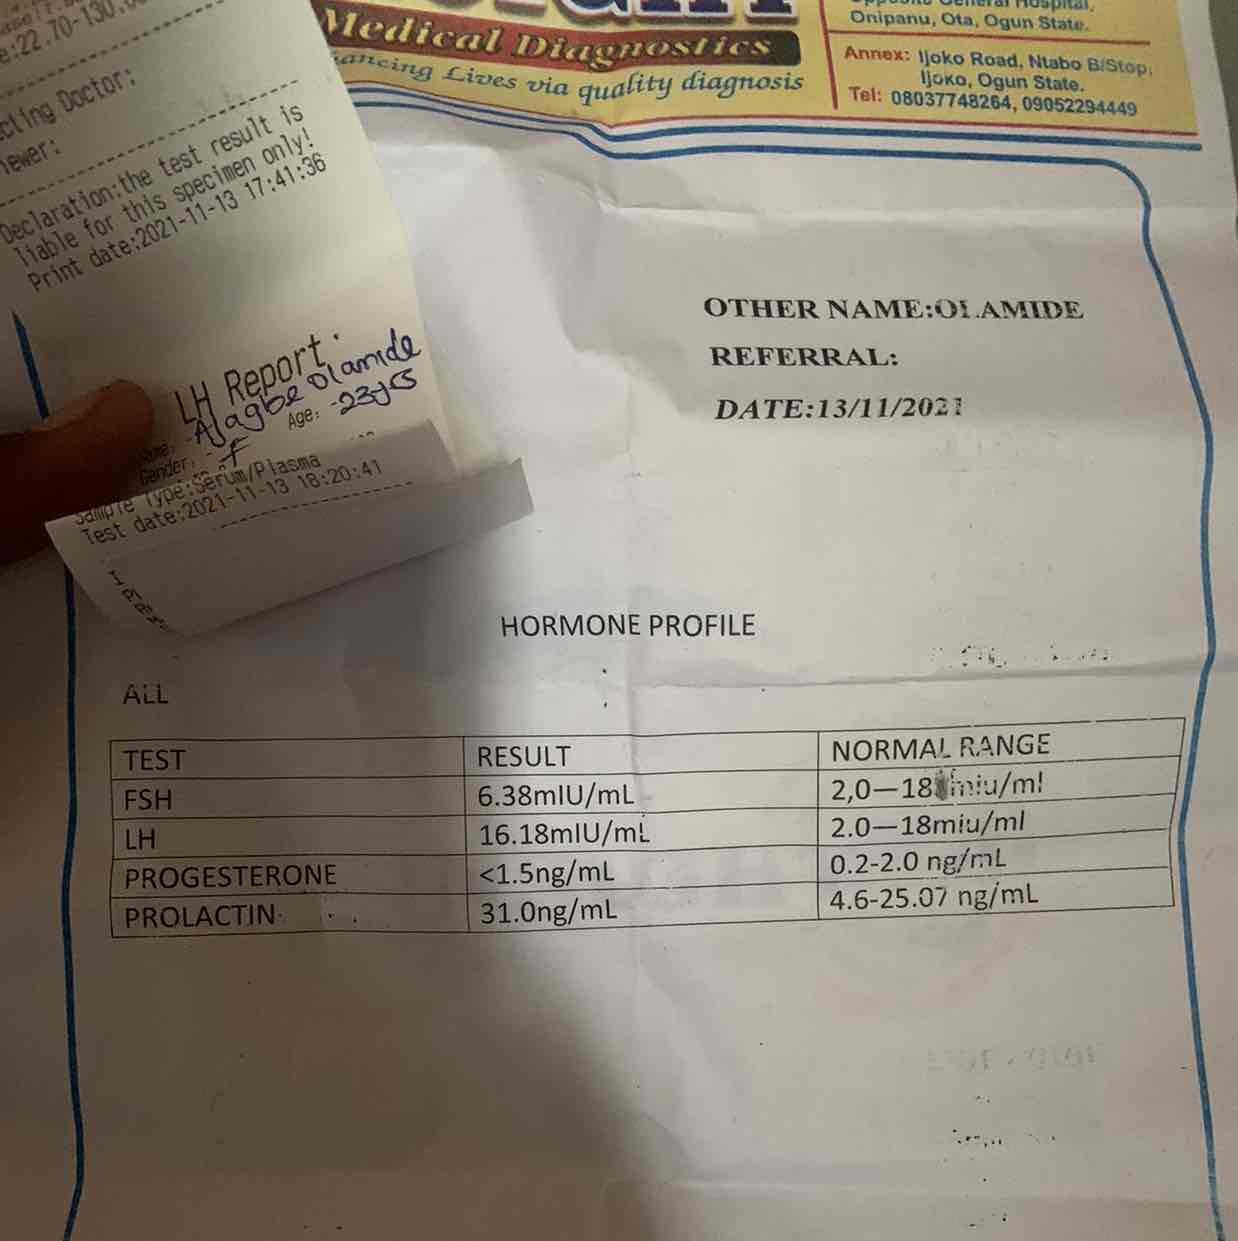 e:22.70-130.
cting Doctor:
iewer:
Declaration:the test result is
liable for this specimen only!
Print date:2021-11-13 17:41:36
LH Report
Ajagbe Olamide
Gender: F Age: 23yrs
Sample Type:Serum/Plasma
Test date:2021-11-13 18:20:41
Medical Diagnostics
ancing Lives via quality diagnosis
Opposite General Hospital,
Onipanu, Ota, Ogun State.
Annex: Ijoko Road, Ntabo B/Stop,
Ijoko, Ogun State.
Tel: 08037748264, 09052294449
OTHER NAME:OLAMIDE
REFERRAL:
DATE:13/11/2021
HORMONE PROFILE
ALL
TEST RESULT NORMAL RANGE
FSH 6.38mIU/mL 2,0—18 miu/ml
LH 16.18mIU/mL 2.0—18miu/ml
PROGESTERONE <1.5ng/mL 0.2-2.0 ng/mL
PROLACTIN 31.0ng/mL 4.6-25.07 ng/mL